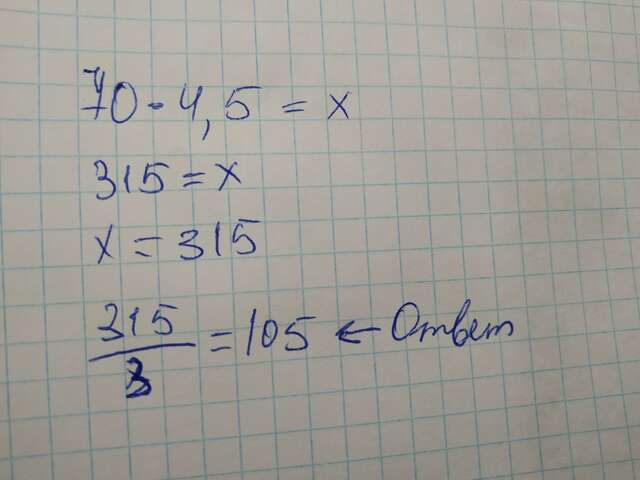 70 · 4,5 = x
315 = x
x = 315
315/3 = 105 ← Ответ